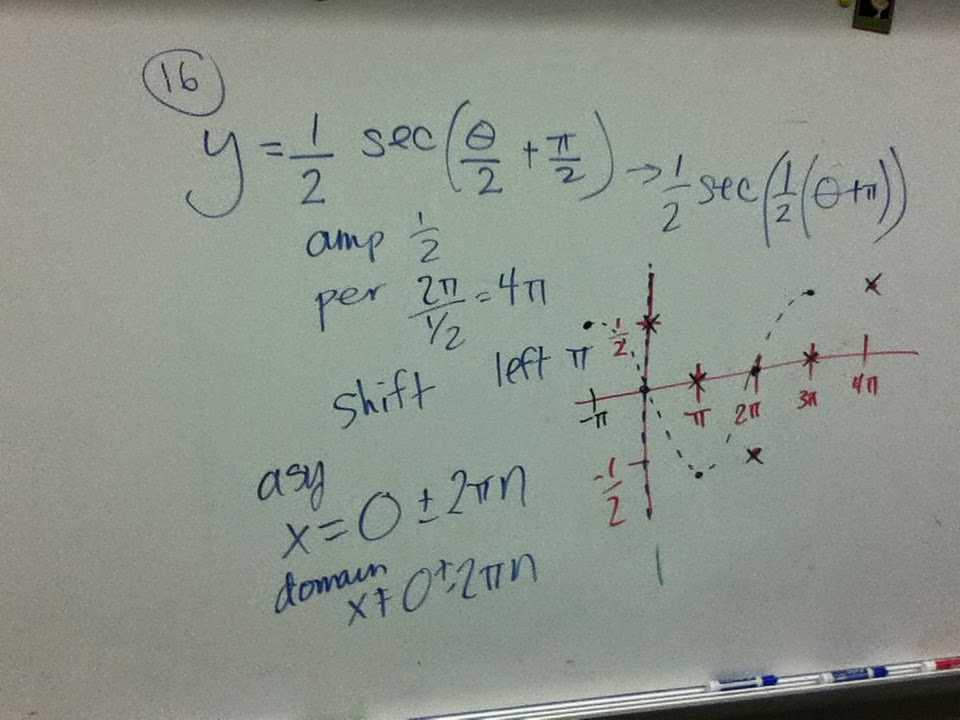 16
y = 1/2 sec(θ/2 + π/2) → 1/2 sec(1/2(θ+π))
amp 1/2
per 2π/1/2 = 4π
shift left π
asy
x = 0 ± 2πn
domain
x ≠ 0 ± 2πn
1/2
-π π 2π 3π 4π
-1/2